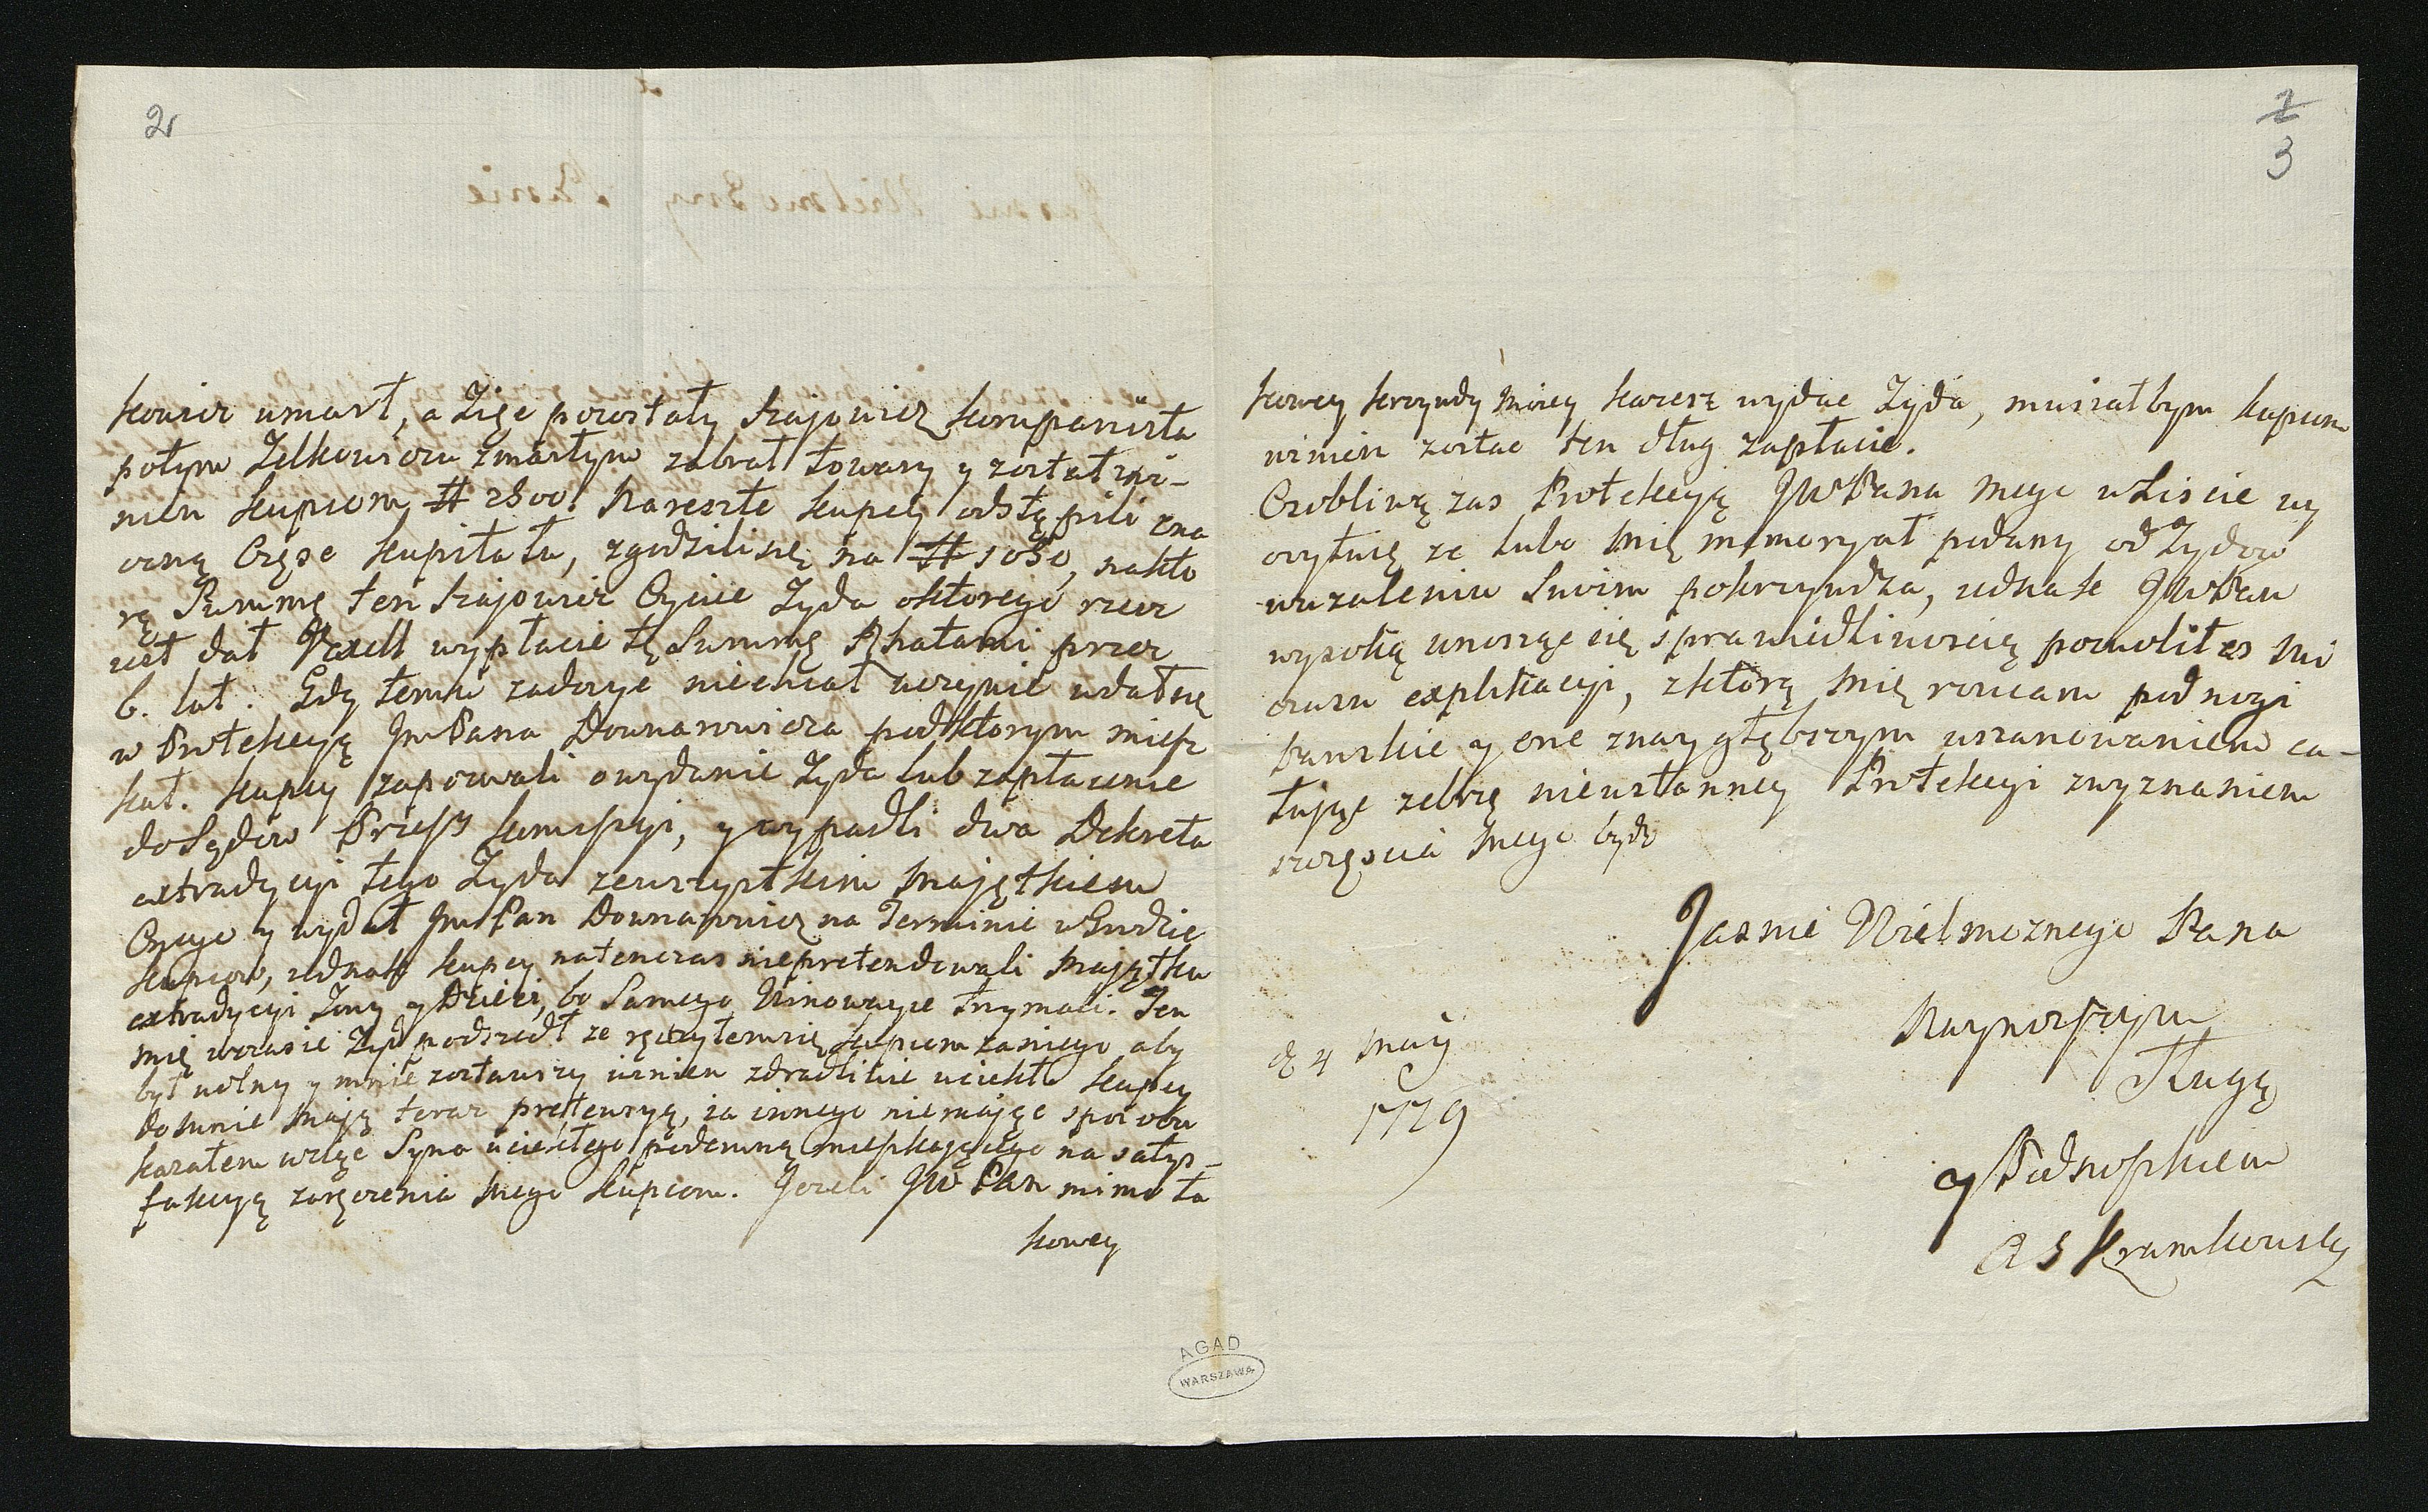 2
kowicz umarł, a Zięć pozostały Szajowicz kompanista
potym Zelkowiczu zmarłym zabrał towary y został wi-
nien kupcom # 2800. Nareszte kupcy odstąpili zna
czną Częsc kapitału, zgodzili się na # 1080, na któ
rą Summę ten Szajowicz Oyciec Zyda o ktorego rzecz
iest dał Vexell wypłacić tę Summę Rhatami przez
6. lat. Gdy temu zadosyc niechciał uczynić udał się
w Protekcyą JmPana Downarowicza pod ktorym miesz
kał. kupcy zapozwali o wydanie Zyda lub zapłacenie
do Sądow Przeß komißyi, y wypadli dwa Dekreta
extradycyi tego Zyda ze wszystkim Maiątkiem
Oycego y wydał JmPan Downarowicz na Terminie w Grodzie
kupcow, iednak kupcy natenczas niepretendowali Maiątku
extradycyi Zony y Dzieci, bo Samego Winowaycę trzymali. Ten
mię wczasie Zyd podszedł ze ręczyłem się kupcom za niego aby
był wolny y mnie zostawszy winien zdradliwie uciekł. Kupcy
do mnie Maią teraz pretensyą, ia innego niemaiąc sposobu
kazałem wziąć Syna uciekłego podemną mießkaiącego na satys-
fakcyą zaręczenia Mego kupcom. Jezeli JW Pan mimo ta
kowey
2
3
kowey krzywdy Moiey każesz wydac Zyda, musiałbym kupcom
winien zostac ten dług zapłacic.
Osobliwą zas Protekcyą JWPana mego w Liscie wy
czytuię ze lubo Mię memoryał podany od Zydow
w uzaleniu Swoim pokrzywdza, iednak JWPan
wysoką unosząc się sprawiedliwoscią pozwoliłes Mi
czasu explikacyi, z ktorą Mię rzucam pod nogi
Panskie y one z naygłębszym uszanowaniem ca-
łuiąc zebrzę nieustanney Protekcyi z wyznaniem
szczęscia Mego bydz
Jasnie Wielmoznego Pana
d 4 Maij
1779
Naynizßym
Sługą
y Podnoßkiem
A S Kramkowsky
AGAD
WARSZAWA